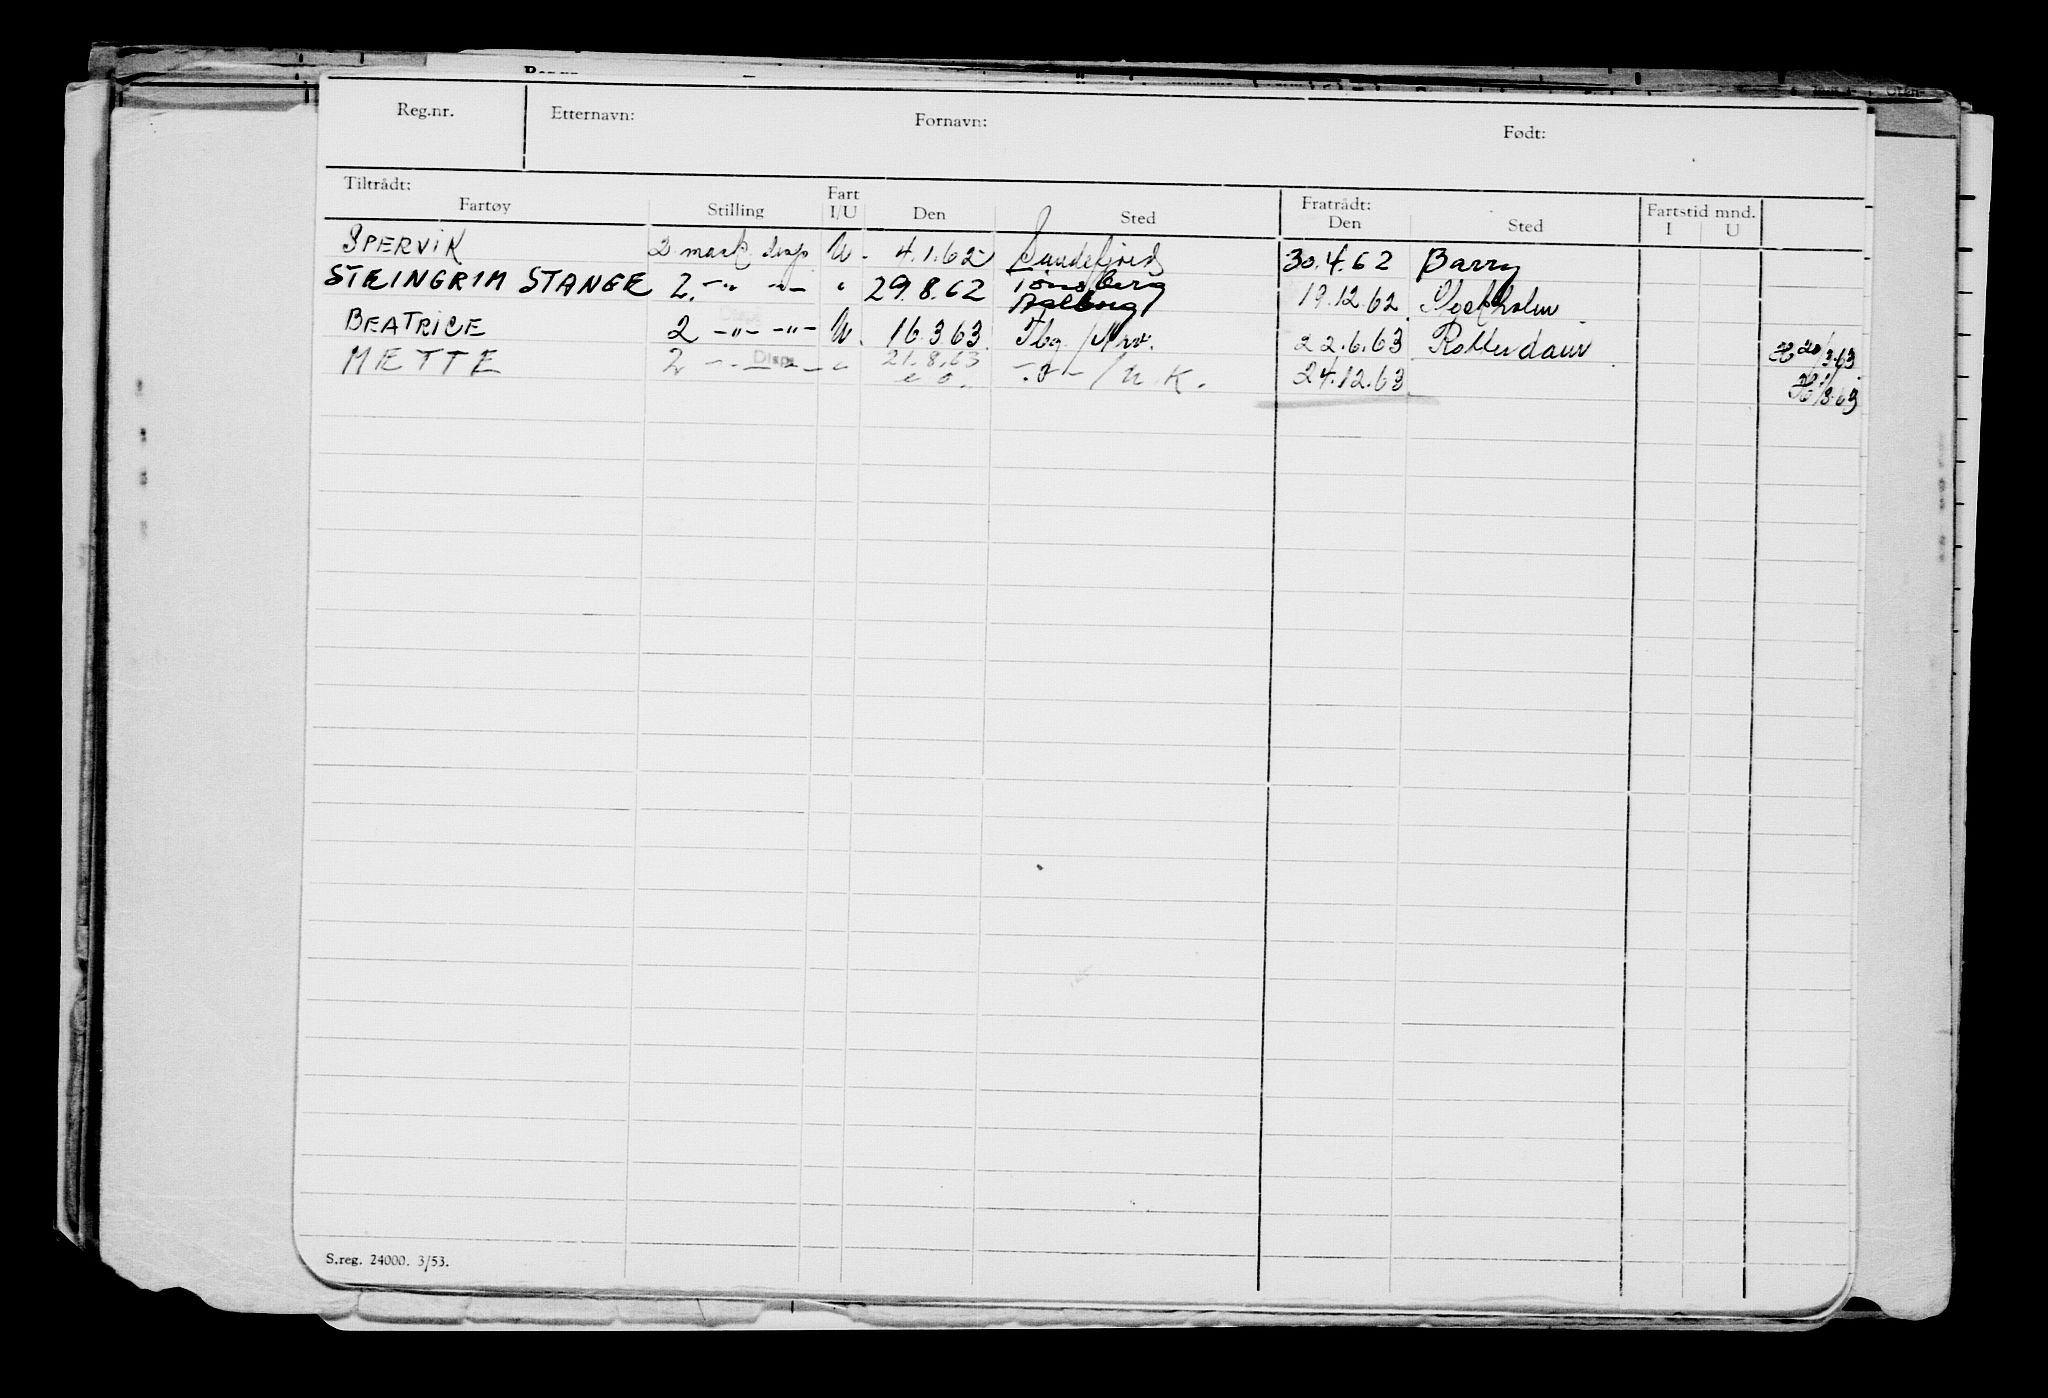 Reg.nr. Etternavn: Fornavn: Født:
Tiltrådt: Fratrådt: Fartstid mnd.
Fartøy Stilling Fart I/U Den Sted Den Sted I U
SPERVIK 2 mask disp U. 4.1.62 Sandefjord 30.4.62 Barry
STEINGRIM STANGE 2. -"- -"- " 29.8.62 Tønsberg 19.12.62 Stockholm
Aalborg
BEATRICE 2 -"- -"- U. 16.3.63 Tbg. / 22.6.63 Rotterdam 20/3.63
METTE 2 - Disp. - " 21.8.63 -"- / U.K. 24.12.63
e.o. /8.63
S.reg. 24000. 3/53.